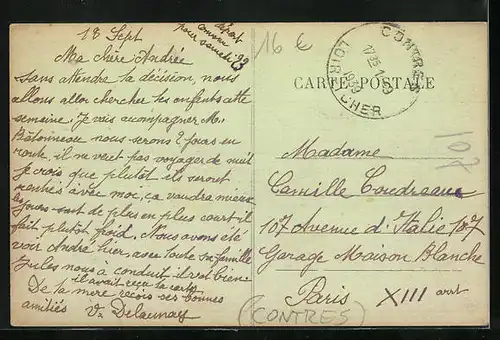 18 Sept
départ
convenu
pour samedi 23
Ma chère Andrée
sans attendre la décision, nous
allons aller chercher les enfants cette
semaine. Je vais accompagner M.
Bâtonneau nous serons 2 jours en
route, il ne veut pas voyager de nuit
Je crois que plutôt ils seront
rentrés avec moi, ça vaudra mieux
les jours sont de plus en plus court il
fait plutôt froid. Nous avons été
voir André hier, avec toute sa famille
Jules nous a conduit, il est bien
il avait reçu ta carte
De ta mère reçois ses bonnes
amitiés V. Delaunay
16 €
CONTRES
LOIR CHER
1939
CARTE POSTALE
801
Madame
Camille Coudreau
107 Avenue d'Italie 107
Garage Maison Blanche
Paris XIII arrt
(CONTRES)